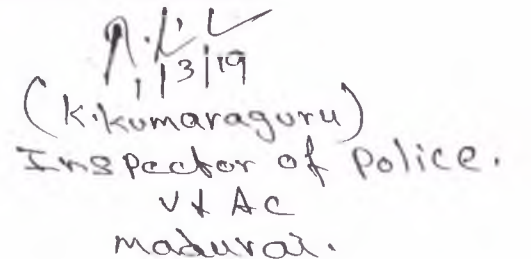 1/3/19
(K.Kumaraguru)
Inspector of Police.
V & AC
Madurai.